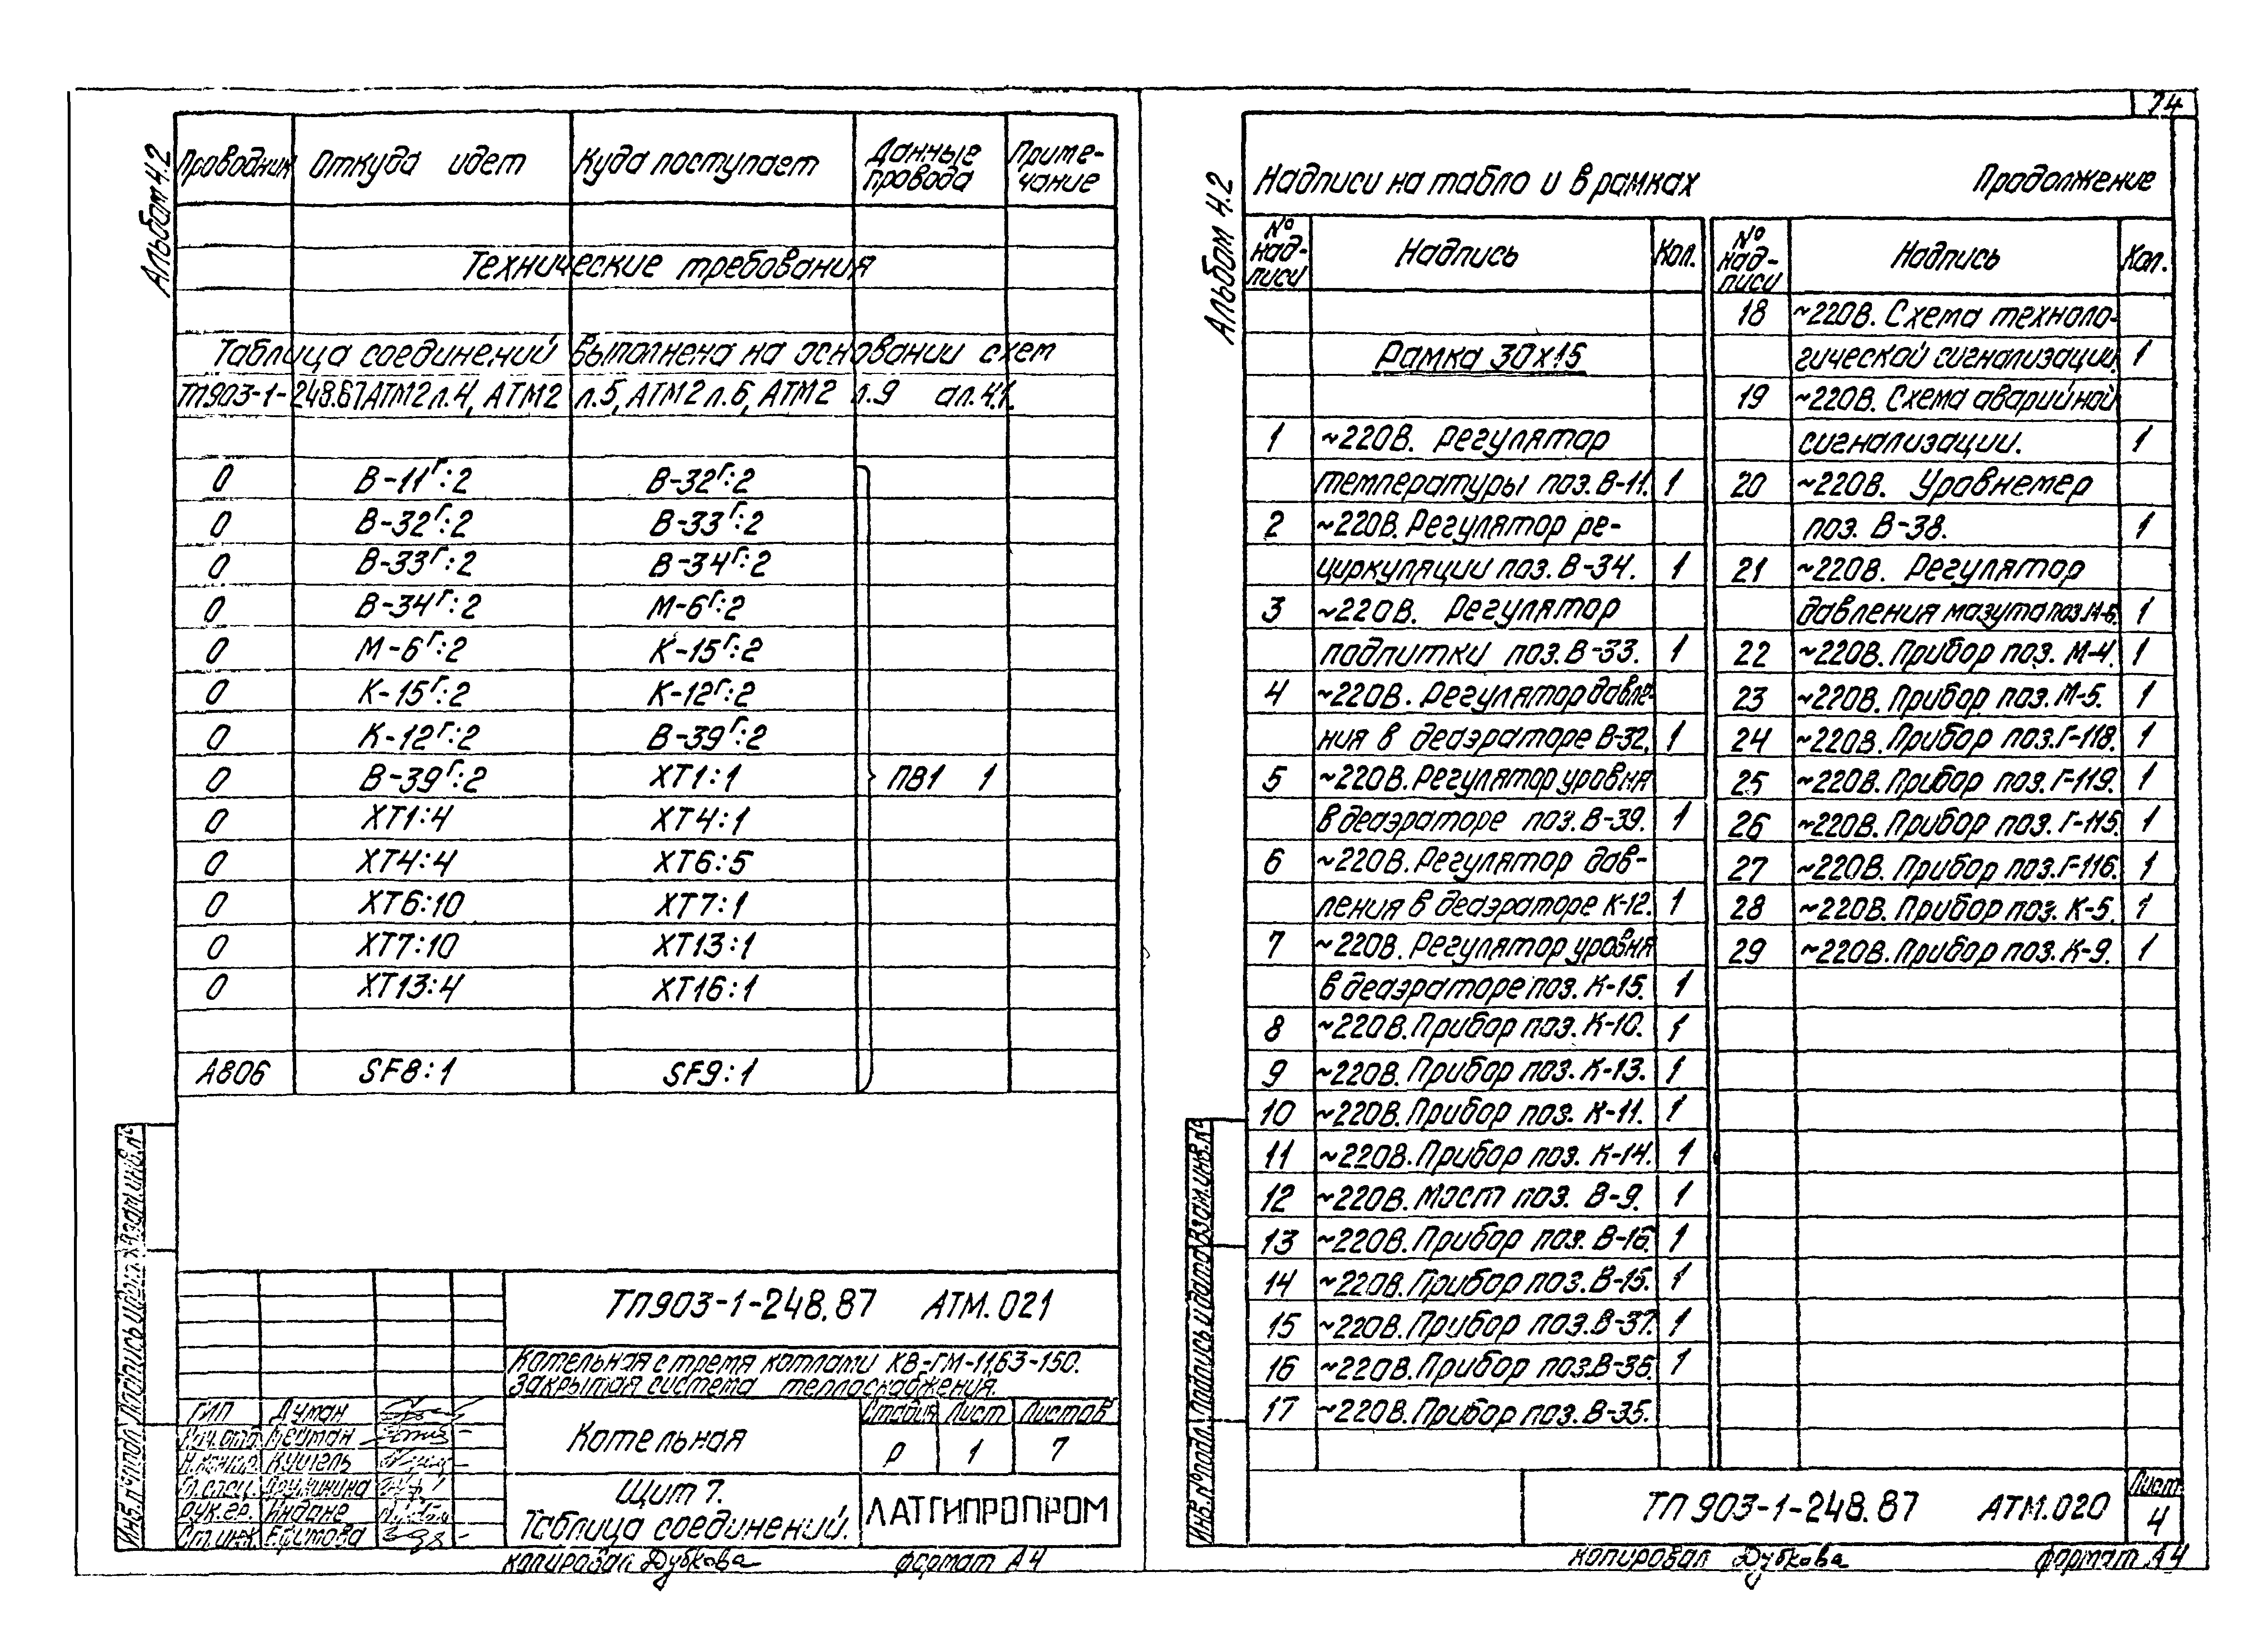 Альбом 4.2
Проводник Откуда идет Куда поступает Данные провода Приме-чание
Технические требования
Таблица соединений выполнена на основании схем
ТП903-1-248.87 АТМ2 л.4, АТМ2 л.5, АТМ2 л.6, АТМ2 л.9 ал.4.1.
0 В-11г:2 В-32г:2
0 В-32г:2 В-33г:2
0 В-33г:2 В-34г:2
0 В-34г:2 М-6г:2
0 М-6г:2 К-15г:2
0 К-15г:2 К-12г:2
0 К-12г:2 В-39г:2
0 В-39г:2 ХТ1:1 ПВ1 1
0 ХТ1:4 ХТ4:1
0 ХТ4:4 ХТ6:5
0 ХТ6:10 ХТ7:1
0 ХТ7:10 ХТ13:1
0 ХТ13:4 ХТ16:1
А806 SF8:1 SF9:1
Инв.№ подл. Подпись и дата Взам.инв.№
ТП903-1-248.87 АТМ.021
Котельная с тремя котлами КВ-ГМ-11,63-150.
Закрытая система теплоснабжения.
ГИП Думан
Нач.отд. Мейман
Н.контр. Кугель
Гл.спец.
Рук.гр. Индане
Ст.инж. Ефимова
Котельная
Стадия Лист Листов
Р 1 7
Щит 7.
Таблица соединений.
ЛАТГИПРОПРОМ
копировал Дубкова формат А4
74
Альбом 4.2
Надписи на табло и в рамках Продолжение
№ над-писи Надпись Кол.
Рамка 30х15
1 ~220В. Регулятор
температуры поз. В-11. 1
2 ~220В. Регулятор ре-
циркуляции поз. В-34. 1
3 ~220В. Регулятор
подпитки поз. В-33. 1
4 ~220В. Регулятор давле-
ния в деаэраторе В-32. 1
5 ~220В. Регулятор уровня
в деаэраторе поз. В-39. 1
6 ~220В. Регулятор дав-
ления в деаэраторе К-12. 1
7 ~220В. Регулятор уровня
в деаэраторе поз. К-15. 1
8 ~220В. Прибор поз. К-10. 1
9 ~220В. Прибор поз. К-13. 1
10 ~220В. Прибор поз. К-11. 1
11 ~220В. Прибор поз. К-14. 1
12 ~220В. Мост поз. В-9. 1
13 ~220В. Прибор поз. В-16. 1
14 ~220В. Прибор поз. В-15. 1
15 ~220В. Прибор поз. В-37. 1
16 ~220В. Прибор поз. В-36. 1
17 ~220В. Прибор поз. В-35.
№ над-писи Надпись Кол.
18 ~220В. Схема техноло-
гической сигнализации. 1
19 ~220В. Схема аварийной
сигнализации. 1
20 ~220В. Уровнемер
поз. В-38. 1
21 ~220В. Регулятор
давления мазута поз. М-6. 1
22 ~220В. Прибор поз. М-4. 1
23 ~220В. Прибор поз. М-5. 1
24 ~220В. Прибор поз. Г-118. 1
25 ~220В. Прибор поз. Г-119. 1
26 ~220В. Прибор поз. Г-115. 1
27 ~220В. Прибор поз. Г-116. 1
28 ~220В. Прибор поз. К-5. 1
29 ~220В. Прибор поз. К-9. 1
Инв.№ подл. Подпись и дата Взам.инв.№
ТП 903-1-248.87 АТМ.020
Лист
4
копировал Дубкова формат А4